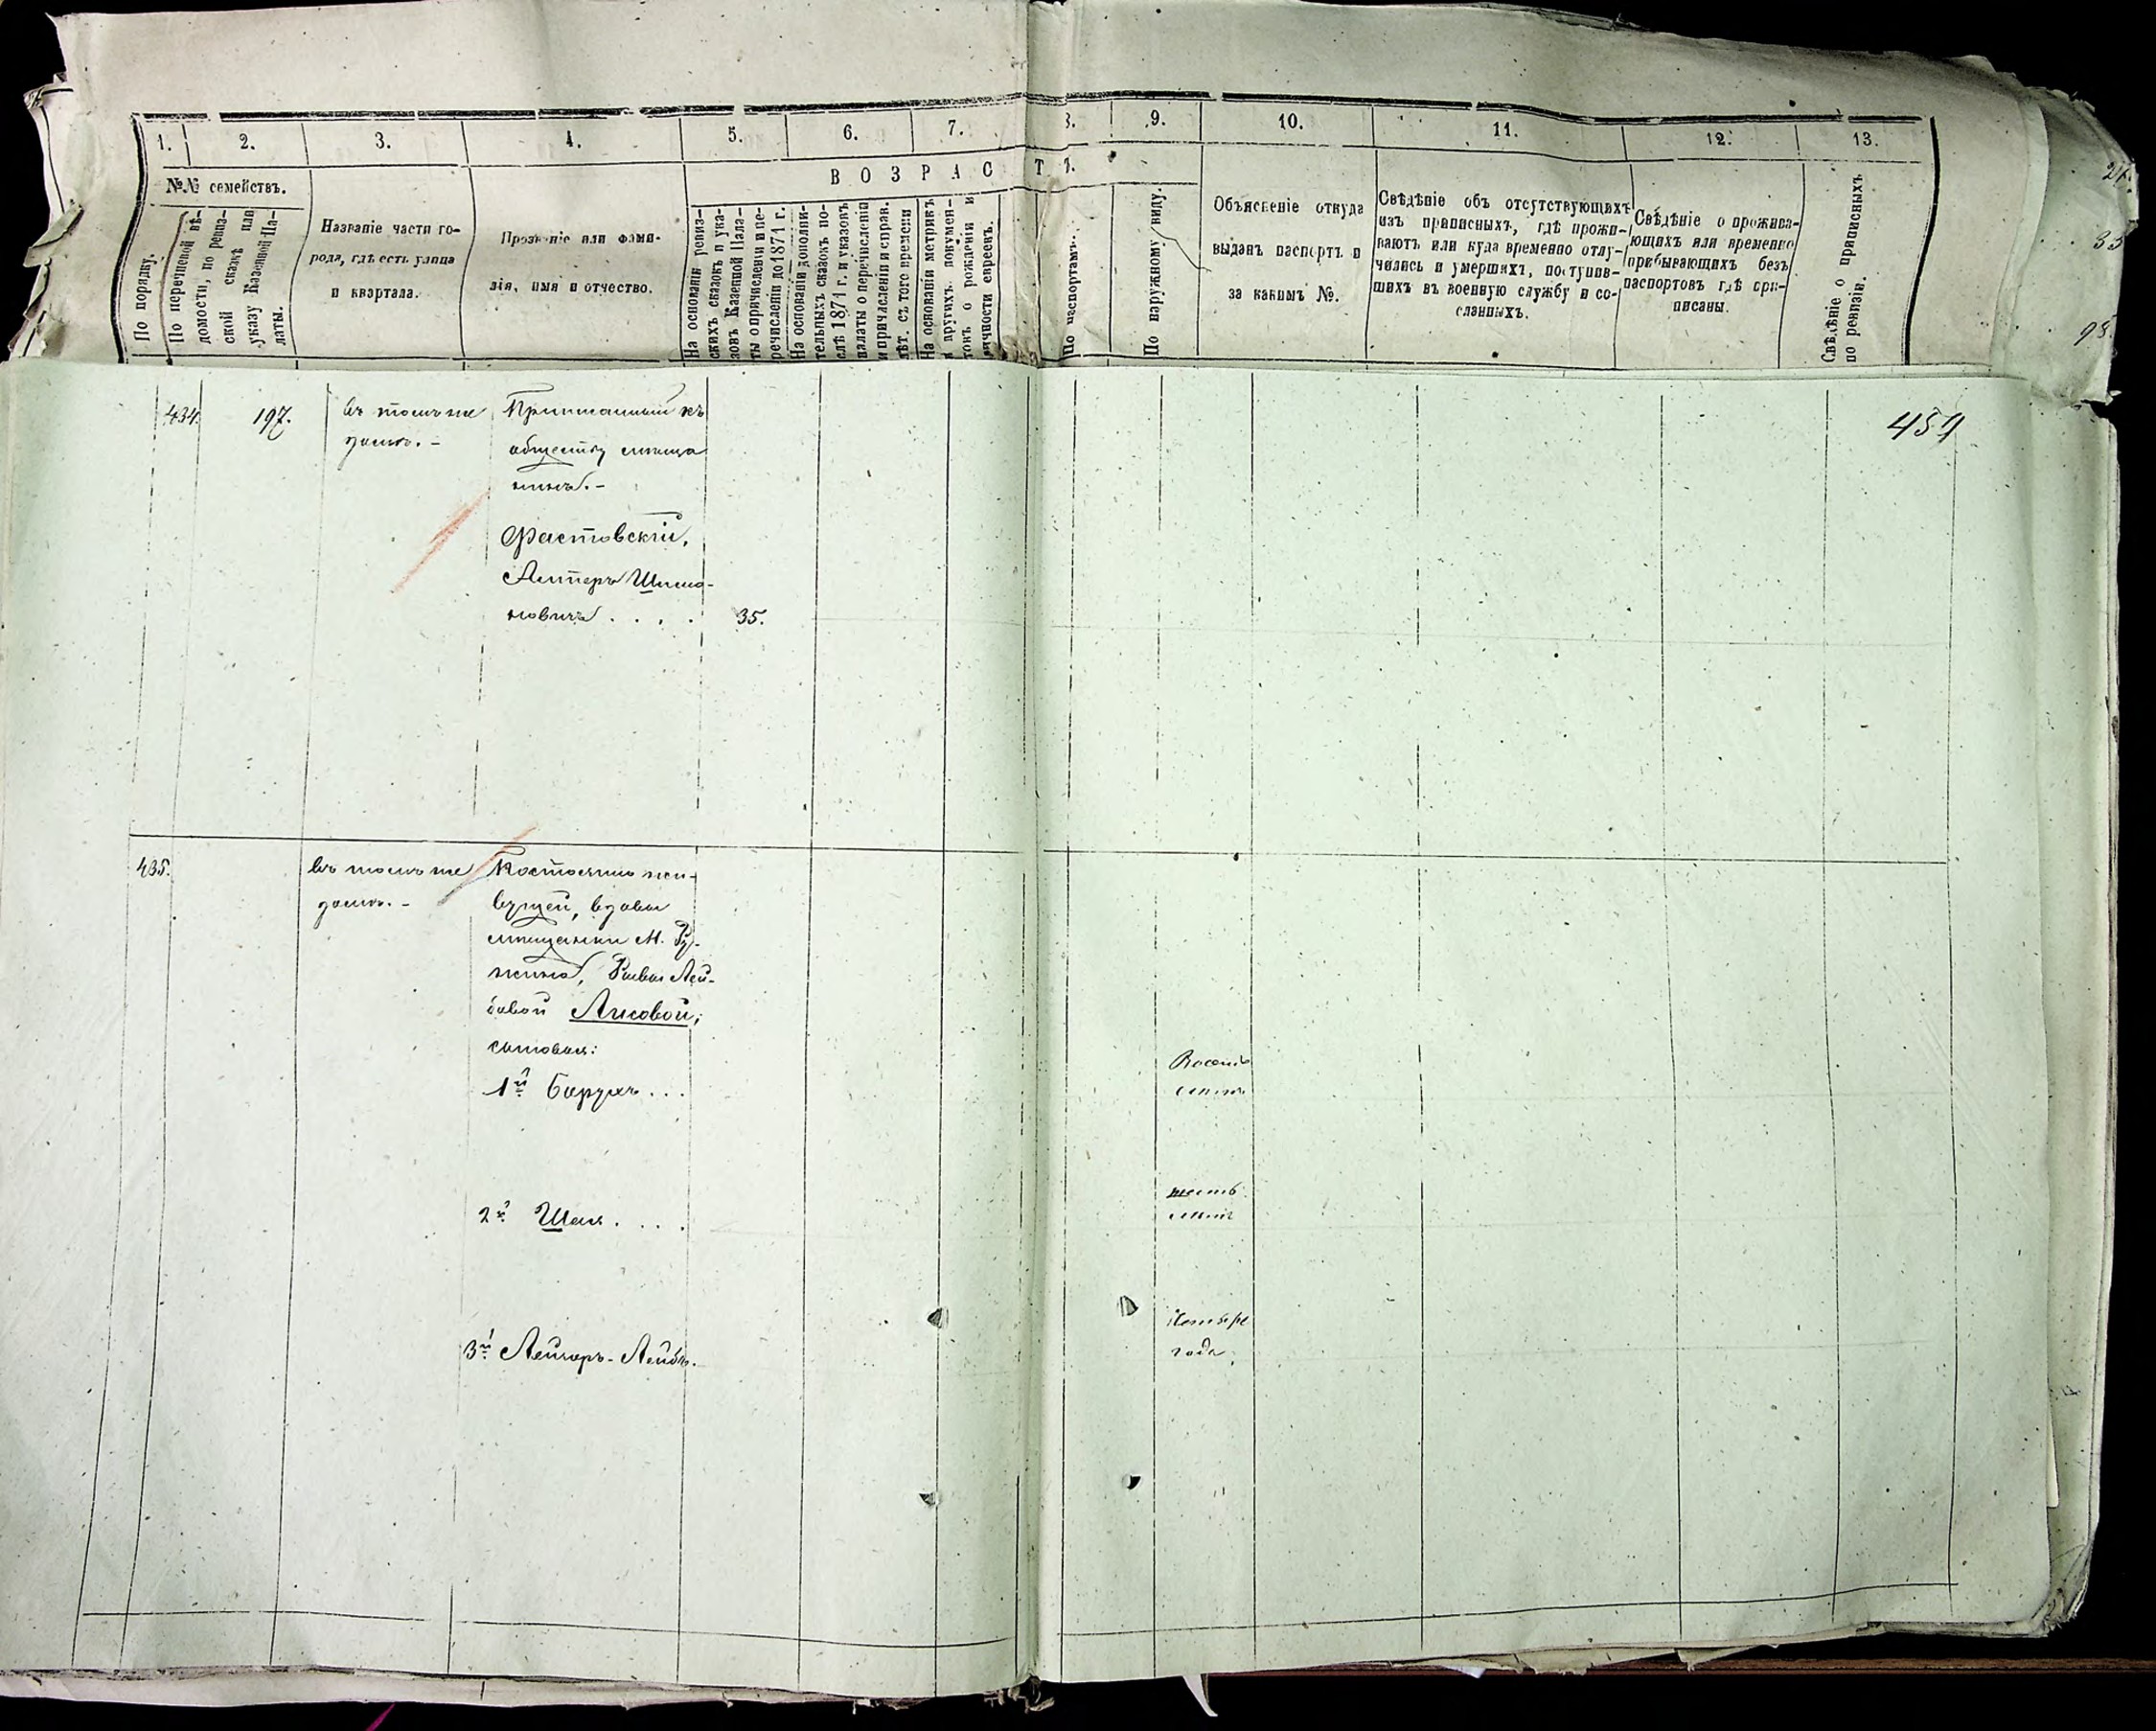 1. 2. 3. 4. 5. 6. 7. 8. 9. 10. 11. 12. 13.
№№ семействъ.
ВОЗРАСТЪ.
По порядку.
По перечневой вѣ-
домости, по ревиз-
ской сказкѣ или
указу Казенной Па-
латы.
Названіе части го-
рода, гдѣ есть улица
и квартала.
Прозваніе или фами-
лія, имя и отчество.
На основаніи ревиз-
скихъ сказокъ и ука-
зовъ Казенной Пала-
ты о причисленіи и пе-
речисленіи до 1871 г.
На основаніи дополни-
тельныхъ сказокъ по-
слѣ 1871 г. и указовъ
палаты о перечисленіи
и причисленіи и справ.
лѣт. съ того времени
На основаніи метрикъ
и другихъ докумен-
товъ о рожденіи и
личности евреевъ.
По паспортамъ.
По наружному виду.
Объясненіе откуда
выданъ паспортъ и
за какимъ №.
Свѣдѣніе объ отсутствующихъ
изъ приписныхъ, гдѣ прожи-
ваютъ или куда временно отлу-
чились и умершихъ, поступив-
шихъ въ военную службу и со-
сланныхъ.
Свѣдѣніе о прожива-
ющихъ или временно
пребывающихъ безъ
паспортовъ гдѣ при-
писаны.
Свѣдѣніе о приписныхъ
по ревизіи.
33
98.
459
434. 197. въ томъ же
домѣ. –
Приписанный къ
обществу мѣща
нинъ. –
Фастовскій,
Алтеръ Шимо-
новичъ . . . . 35.
435. въ томъ же
домѣ. –
Постоянно жи-
вущей, вдовы
мѣщанки М. Ру-
жина, Ривы Лей-
бовой Лисовой,
сыновья:
1й Барухъ . . . Восемь
лѣтъ
2й Шая . . . . шесть
лѣтъ
3й Лейзеръ-Лейбъ. Четыре
года.